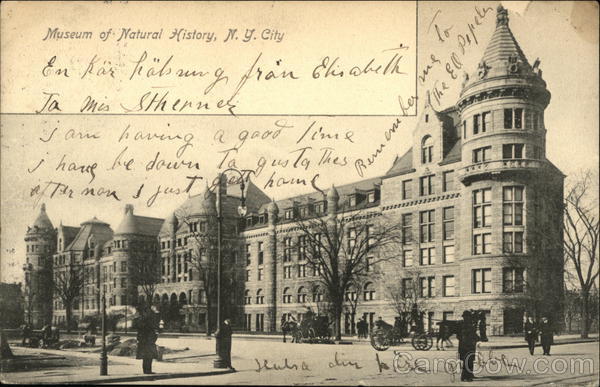 Museum of Natural History, N. Y. City
En kär hälsning från Elisabeth
Ta mis Stherner
I am having a good time
I have be down to gusta this
after non I just got home
Remember me to
the Eq Pepele
CardCow.com